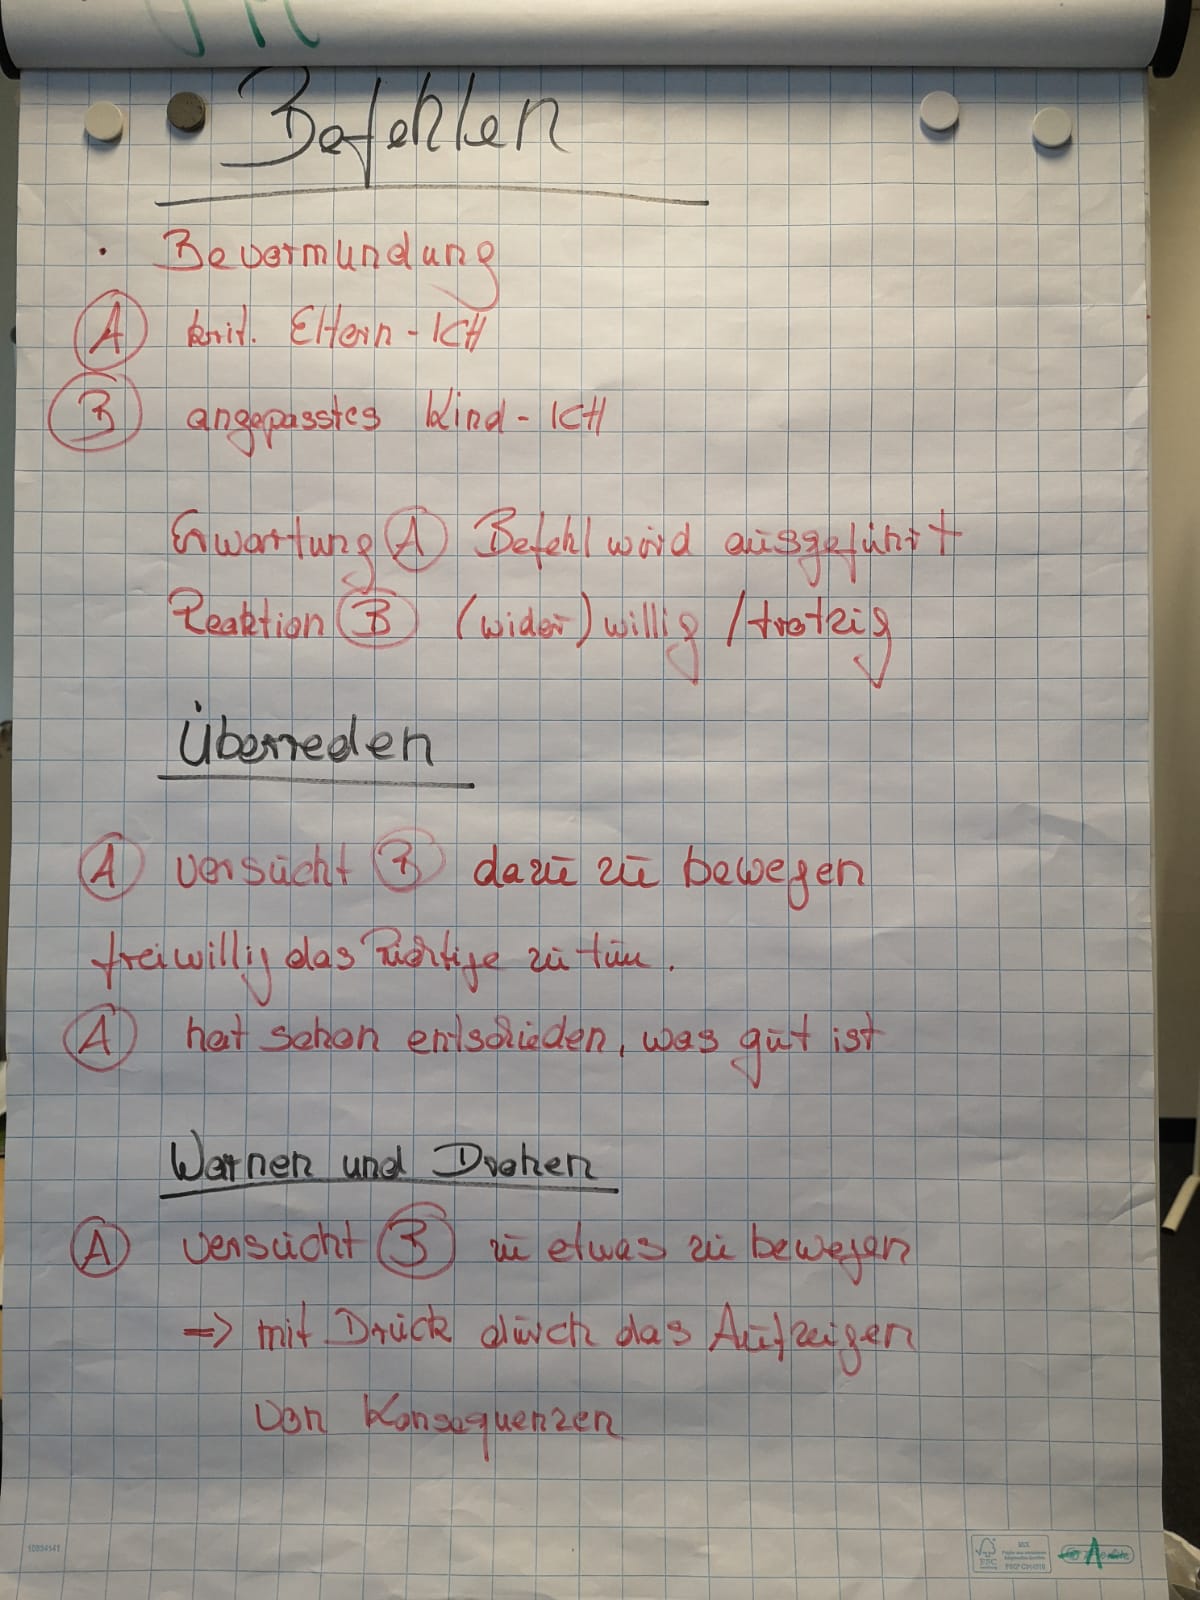 Befehlen
· Bevormundung
A krit. Eltern-ICH
B angepasstes Kind-ICH
Erwartung A Befehl wird ausgeführt
Reaktion B (wider)willig/trotzig
Überreden
A versucht B dazu zu bewegen
freiwillig das Richtige zu tun.
A hat schon entschieden, was gut ist
Warnen und Drohen
A versucht B zu etwas zu bewegen
=> mit Druck durch das Aufzeigen
von Konsequenzen
MIX
FSC
A